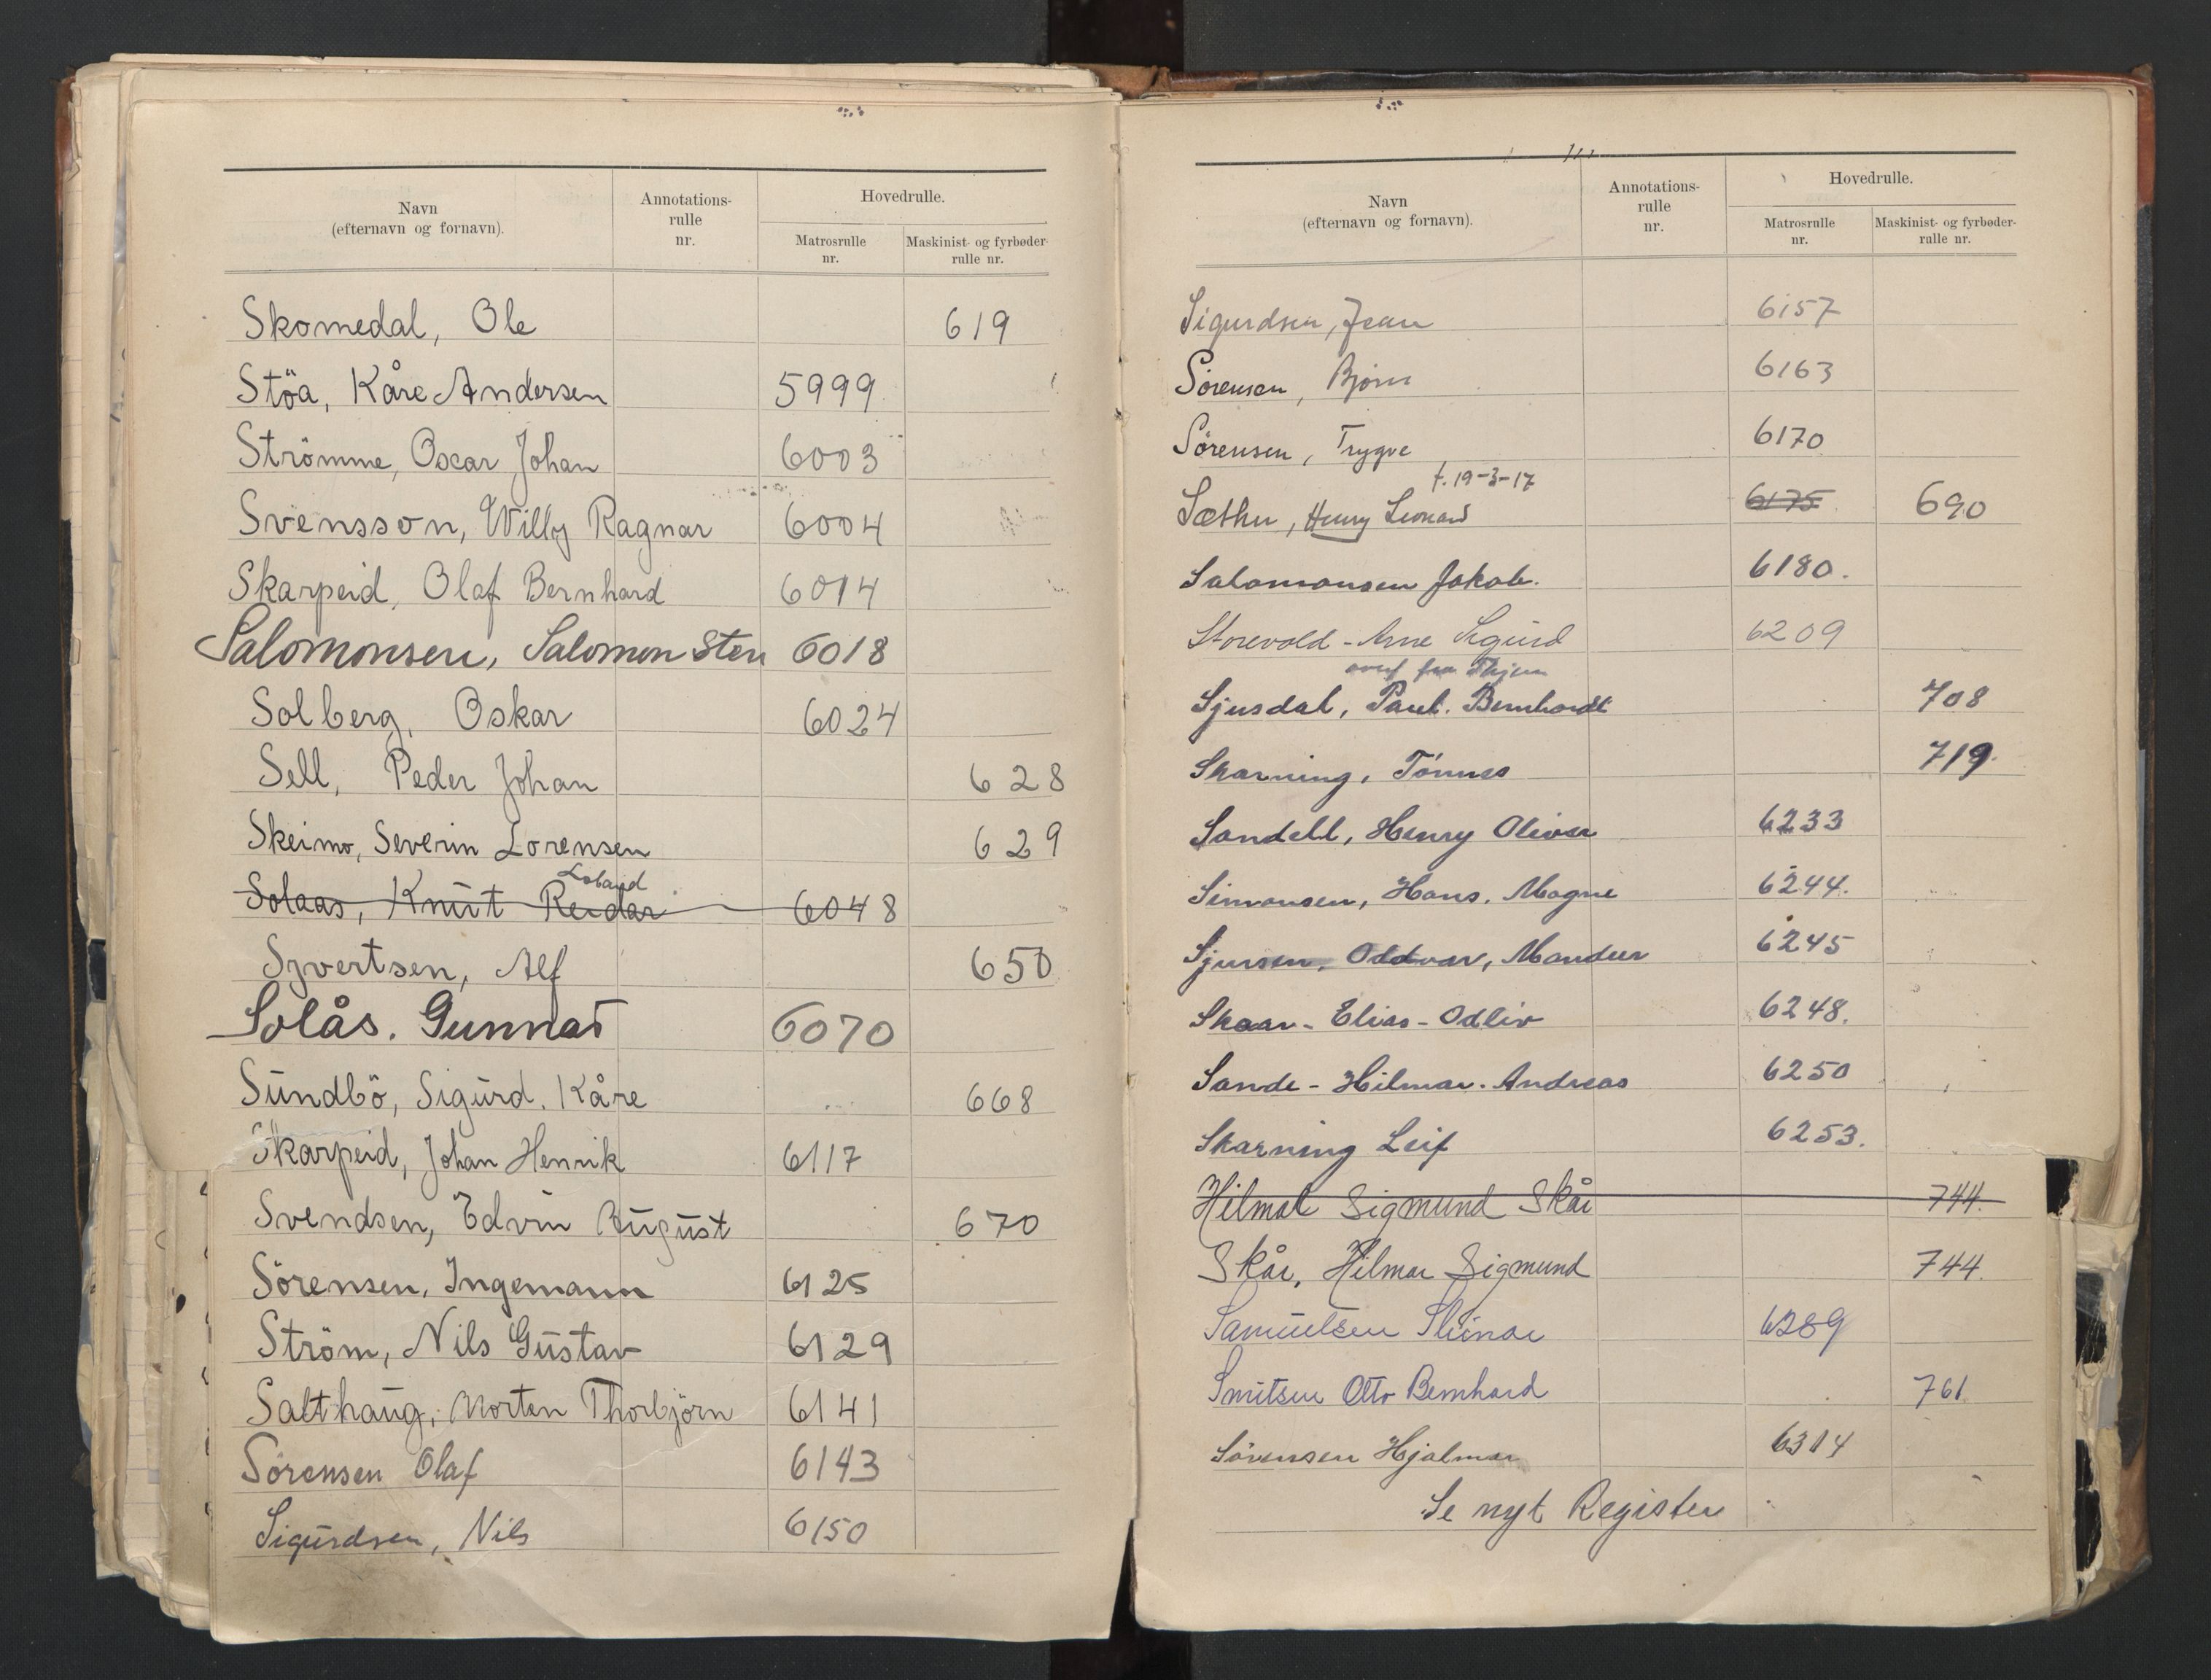 Navn
(efternavn og fornavn).
Annotations-
rulle
nr.
Hovedrulle.
Matrosrulle
nr.
Maskinist- og fyrbøder-
rulle nr.
Skomedal, Ole 619
Stöa, Kåre Andersen 5999
Strömme, Oscar Johan 6003
Svensson, Willy Ragnar 6004
Skarpeid, Olaf Bernhard 6014
Salomonsen, Salomon Sten 6018
Solberg, Oskar 6024
Sell, Peder Johan 628
Skeimo, Severin Lorensen 629
Loland
Solaas, Knut Reidar 6048
Syvertsen, Alf 650
Solås. Gunnar 6070
Sundbö, Sigurd. Kåre 668
Skarpeid, Johan Henrik 6117
Svendsen, Edvin August 670
Sörensen, Ingemann 6125
Ström, Nils Gustav 6129
Salthaug, Morten Thorbjörn 6141
Sörensen Olaf 6143
Sigurdsen, Nils 6150
Navn
(efternavn og fornavn).
Annotations-
rulle
nr.
Hovedrulle.
Matrosrulle
nr.
Maskinist- og fyrbøder-
rulle nr.
Sigurdsen, Jean 6157
Sörensen, Bjørn 6163
Sörensen, Trygve 6170
f. 19-3-17
Sæther, Henry Leonard 6175 690
Salomonsen Jakob. 6180.
Storevold - Arne Sigurd 6209
overf fra
Sjusdal, Paul. Bernhardt 708
Skarning, Tönnes 719.
Sandell, Henry Oliver 6233
Simonsen, Hans. Magne 6244.
Sjursen, Oddvar, 6245
Skaar - Elias - Odliv 6248.
Sande - Hilmar. Andreas 6250
Skarning Leif 6253.
Hilmar Sigmund Skår 744.
Skår, Hilmar Sigmund 744.
Samuelsen 6289
Smitsen Otto Bernhard 761.
Sörensen Hjalmar 6314
Se nyt Register